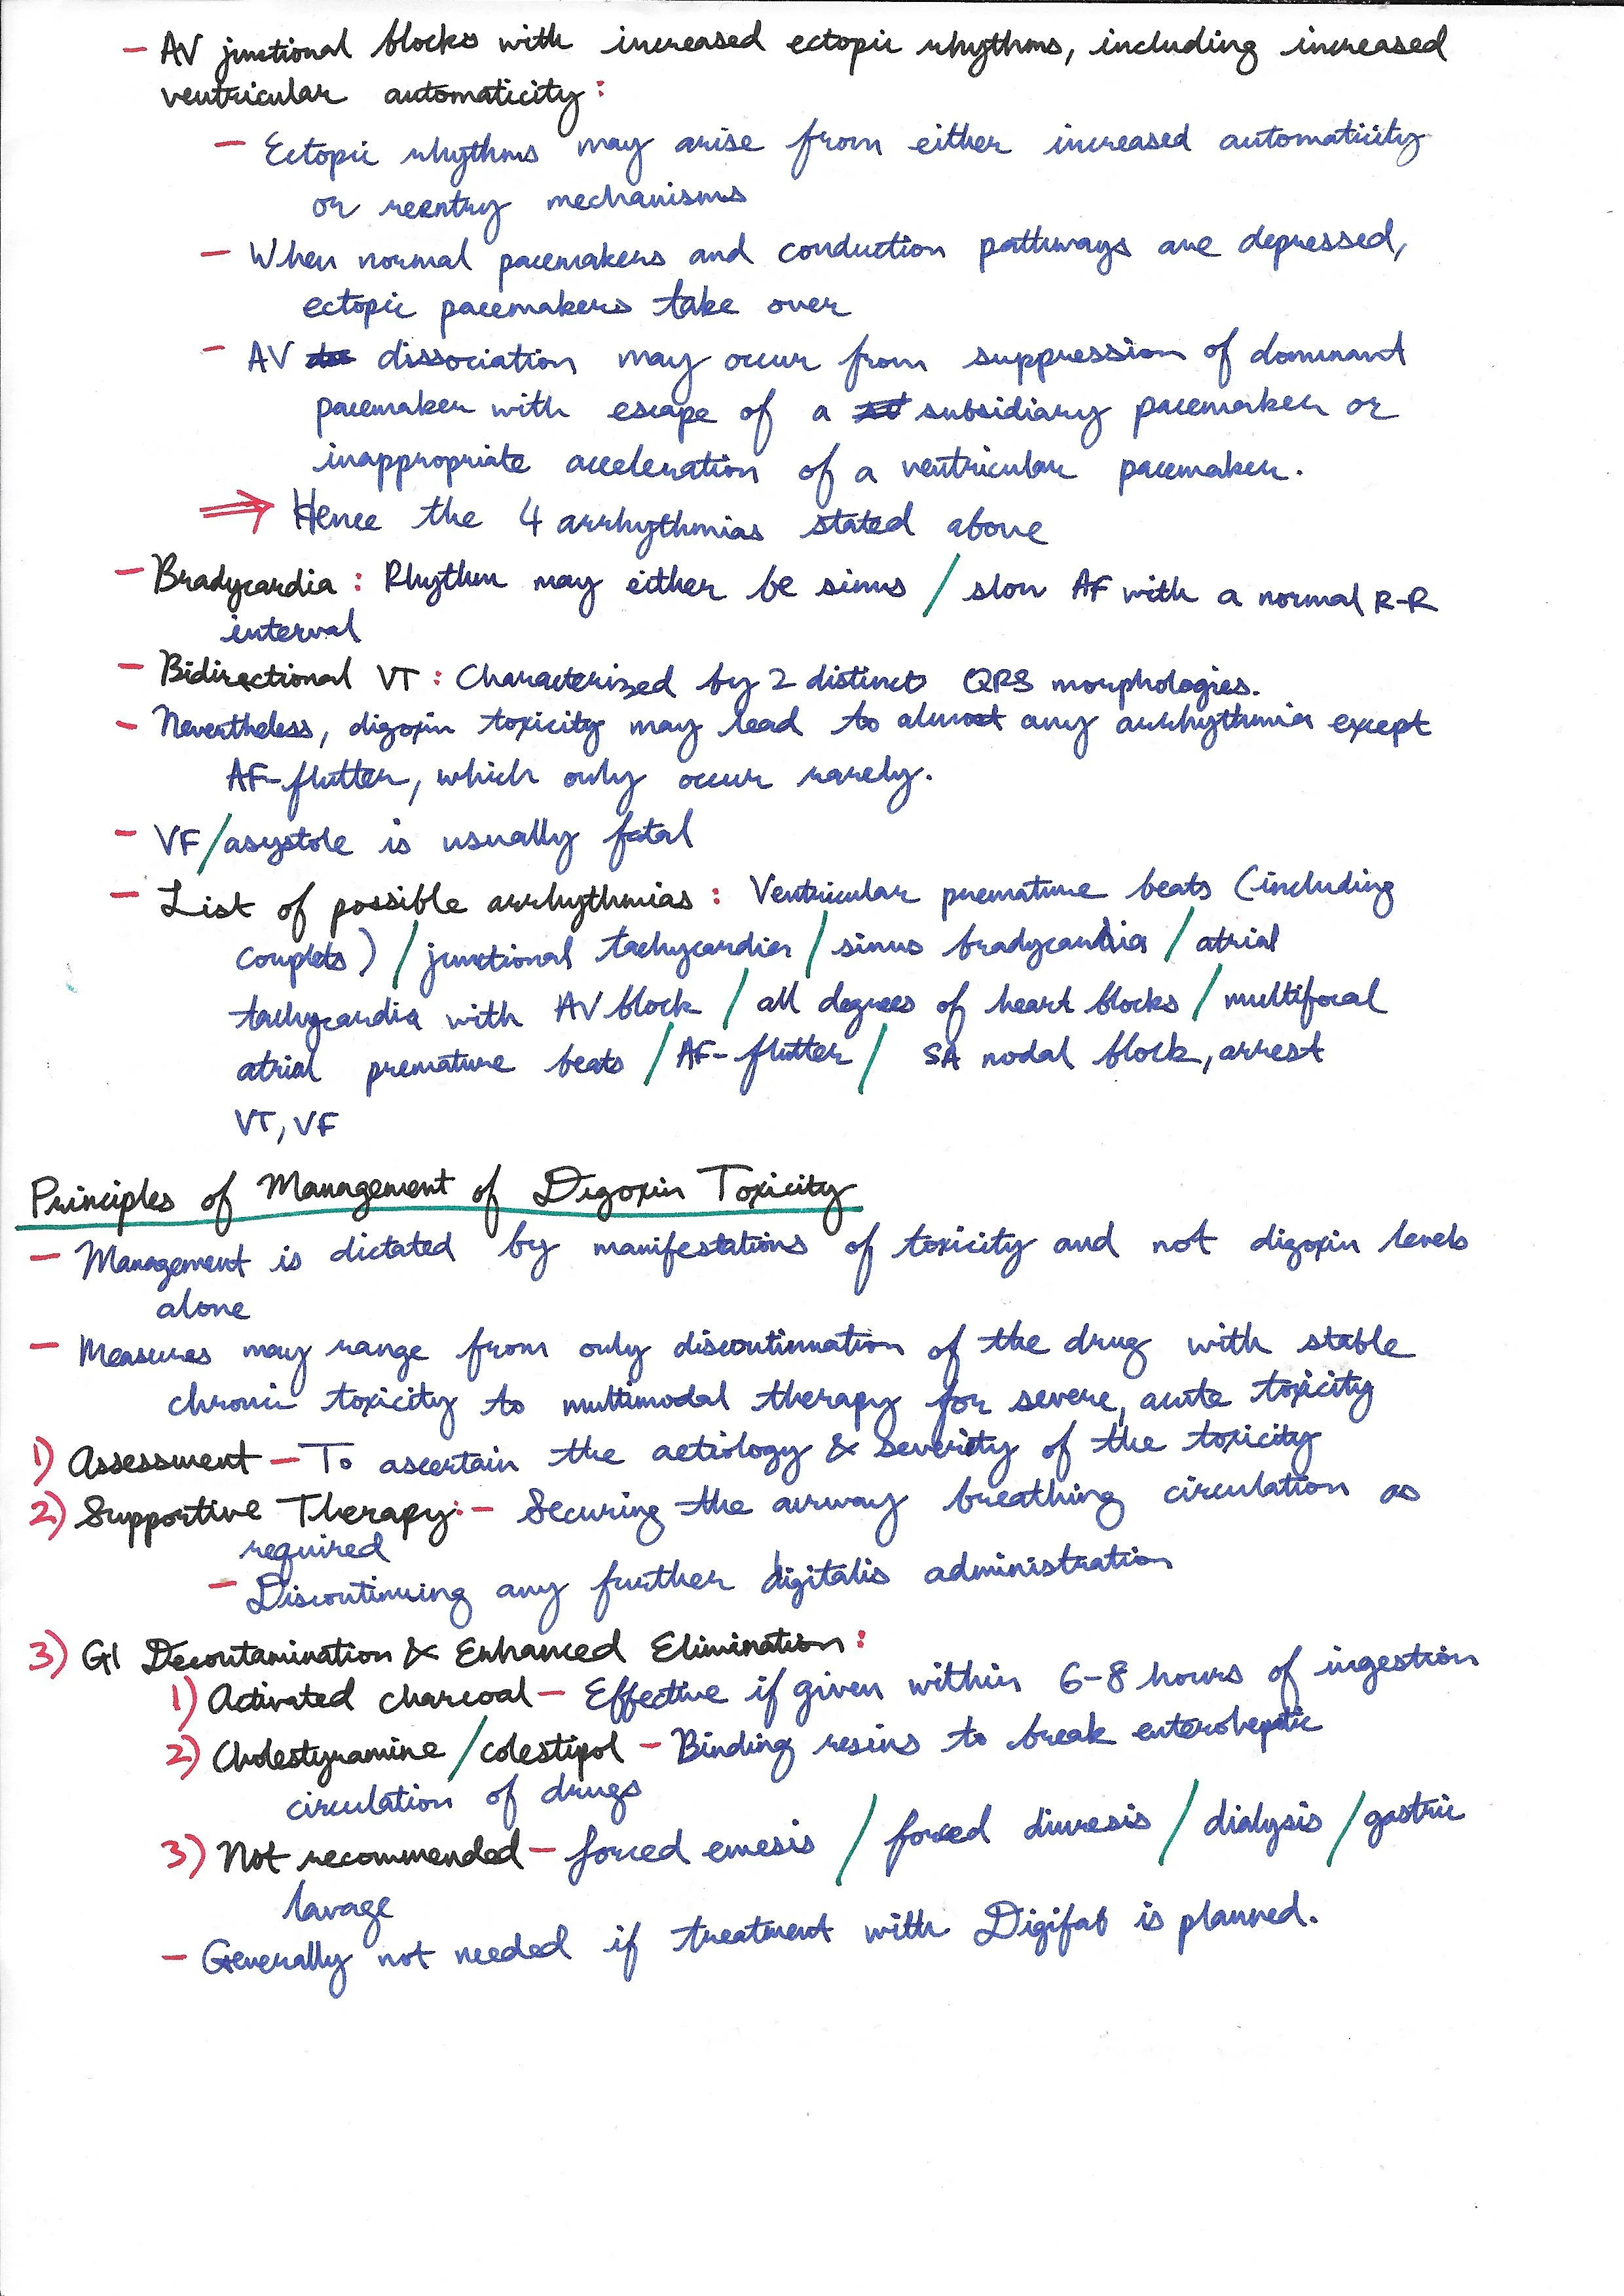 - AV junctional blocks with increased ectopic rhythms, including increased
ventricular automaticity:
- Ectopic rhythms may arise from either increased automaticity
or reentry mechanisms
- When normal pacemakers and conduction pathways are depressed,
ectopic pacemakers take over
- AV dissociation may occur from suppression of dominant
pacemaker with escape of a subsidiary pacemaker or
inappropriate acceleration of a ventricular pacemaker.
⇒ Hence the 4 arrhythmias stated above
- Bradycardia: Rhythm may either be sinus / slow AF with a normal R-R
interval
- Bidirectional VT: Characterized by 2 distinct QRS morphologies.
- Nevertheless, digoxin toxicity may lead to almost any arrhythmia except
AF-flutter, which only occur rarely.
- VF/asystole is usually fatal
- List of possible arrhythmias: Ventricular premature beats (including
couplets) / junctional tachycardia / sinus bradycardia / atrial
tachycardia with AV block / all degrees of heart blocks / multifocal
atrial premature beats / AF-flutter / SA nodal block, arrest
VT, VF
Principles of Management of Digoxin Toxicity
- Management is dictated by manifestations of toxicity and not digoxin levels
alone
- Measures may range from only discontinuation of the drug with stable
chronic toxicity to multimodal therapy for severe, acute toxicity
1) Assessment - To ascertain the aetiology & severity of the toxicity
2) Supportive Therapy: - Securing the airway breathing circulation as
required
- Discontinuing any further digitalis administration
3) GI Decontamination & Enhanced Elimination:
1) Activated charcoal - Effective if given within 6-8 hours of ingestion
2) Cholestyramine / colestipol - Binding resins to break enterohepatic
circulation of drugs
3) Not recommended - forced emesis / forced diuresis / dialysis / gastric
lavage
- Generally not needed if treatment with Digifab is planned.